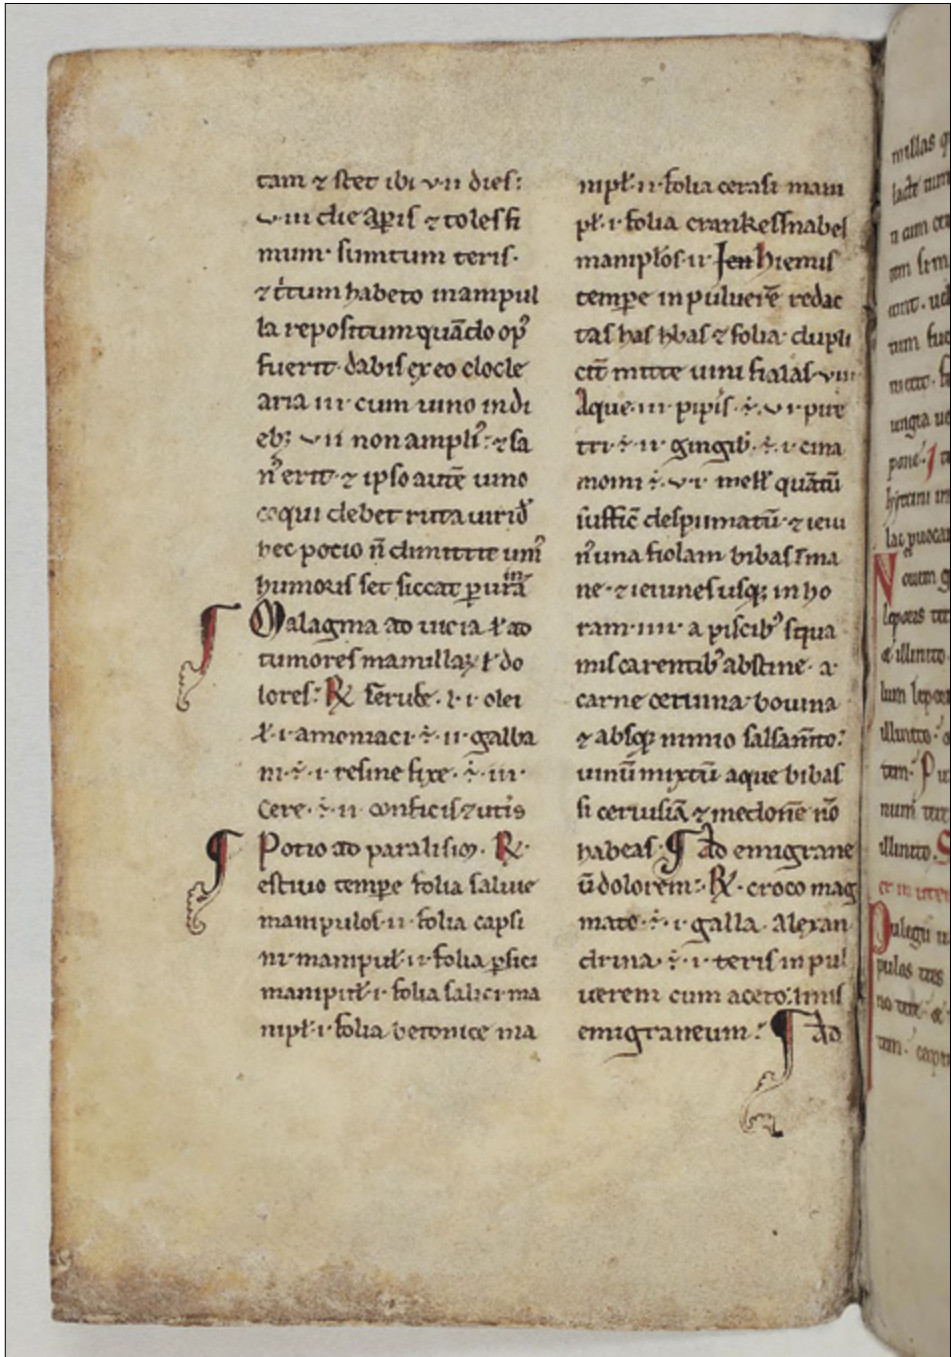 tam ⁊ stet ibi vii dies:
viii die apis ⁊ toles fi
mum· sumtum teris·
⁊ t̄tum habeto inampul
la repositum quādo opꝰ
fuerit· dabis ex eo clocle
aria iii· cum uino in di
ebꝫ vii non ampliꝰ: ⁊ sa
nꝰ erit· ⁊ ipso autē uino
coqui debet ruta uirid̄
hec potio n̄ dimittit
humoris set siccat ꝑ urinā
Malagma ad uicia ł ad
tumores mamillaꝝ ł do
lores: ℞ olei
ł· i· amoniaci ii· galba
ni· i· resine fixe· iii·
cere· ii· conficis ⁊ utis
Potio ad paralisim· ℞·
estiuo tempe folia saluie
manipulos· ii· folia capsi
ni· manipuł· ii· folia ꝑsici
manipuł· i· folia salici ma
nipł· i· folia betonice ma
nipł· ii· folia cerasi mani
pł· i· folia crankessnabel
maniplos· ii· Hiemis
tempe in puluerē redac
tas has hbas ⁊ folia· dupli
cit̄ mitte uini fialas· viii
Aque· iii· pipis· vi· pire
tri· ii· gingib̄· i· cina
momi· vi· melł quātū
suffic̄ despumatū· ⁊ ieiu
nꝰ una fiolam bibas ma
ne· ⁊ ieiunes usqꝫ in ho
ram· iiii· a piscibꝰ squa
mis carentibꝰ abstine· a·
carne ceruina· bouina
⁊ absqꝫ nimio salsam̄to:
uinū mixtū aque bibas
si ceruisiā ⁊ medonē nō
habeas· Ad emigrane
ū dolorem: ℞· croco mag
mato· i· galla· Alexan
drina· i· teris in pul
uerem cum aceto: linis
emigraneum: Ad